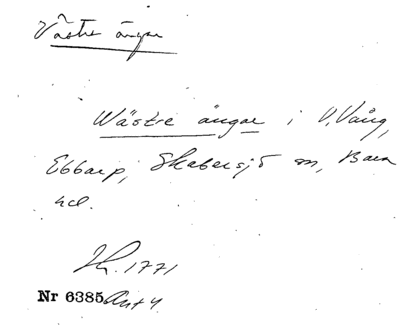 Västre ängar
Wästre ängar i V. Vång,
Ebbarp, Skabersjö sn, Bara
hd.
1771
Nr 6385 Akt 4